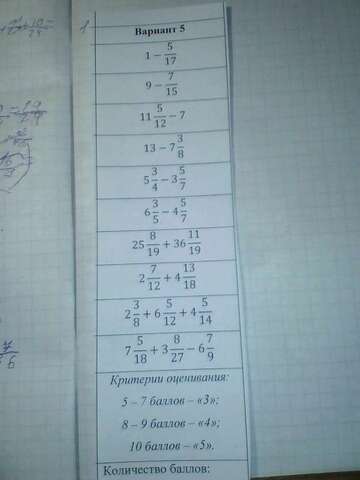 1
Вариант 5
1 − 5/17
9 − 7/15
11 5/12 − 7
13 − 7 3/8
5 3/4 − 3 5/7
6 3/5 − 4 5/7
25 8/19 + 36 11/19
2 7/12 + 4 13/18
2 3/8 + 6 5/12 + 4 5/14
7 5/18 + 3 8/27 − 6 7/9
Критерии оценивания:
5 – 7 баллов – «3»;
8 – 9 баллов – «4»;
10 баллов – «5».
Количество баллов: